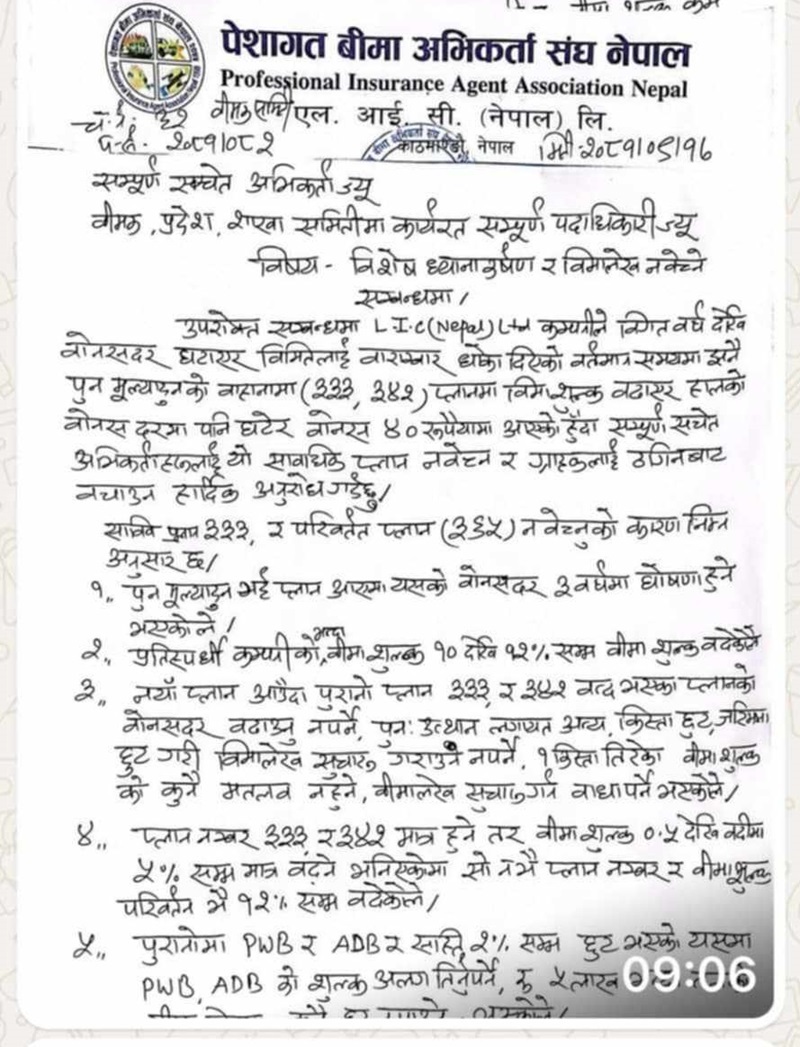 पेशागत बीमा अभिकर्ता संघ नेपाल
Professional Insurance Agent Association Nepal
च.नं. ३२ बीमक समिति एल. आई. सी. (नेपाल) लि.
प.सं. २०८१/०८२ काठमाण्डौ, नेपाल मिति २०८१/०९/१६
सम्पूर्ण सचेत अभिकर्ता ज्यू
बीमक, प्रदेश, शाखा समितिमा कार्यरत सम्पूर्ण पदाधिकारी ज्यू
विषय - विशेष ध्यानाकर्षण र विमालेख नवेच्ने
सम्बन्धमा /
उपरोक्त सम्बन्धमा L.I.C(Nepal)Ltd कम्पनीले विगत वर्ष देखि
वोनसदर घटाएर विमितलाई वारम्वार धोका दिएको वर्तमान समयमा झनै
पुन मूल्याङ्कनको वाहानामा (३३३, ३४२) प्लानमा विमा शुल्क वढाएर हालको
वोनस दरमा पनि घटेर वोनस ४० रूपैयामा आएको हुँदा सम्पूर्ण सचेत
अभिकर्ताहरूलाई यो सावधिक प्लान नवेच्न र ग्राहकलाई ठगिनबाट
वचाउन हार्दिक अनुरोध गर्दछु/
सावधि प्लान ३३३, र परिवर्तित प्लान (३६५) नवेच्नुको कारण निम्न
अनुसार छ/
१,, पुन मूल्याङ्कन भई प्लान आएमा यसको वोनसदर ३ वर्षमा घोषणा हुने
भएकोले /
२,, प्रतिस्पर्धी कम्पनीको भन्दा वीमा शुल्क १० देखि १२% सम्म वीमा शुल्क वढेकोले
३,, नयाँ प्लान आउँदा पुरानो प्लान ३३३ र ३४२ वन्द भएका प्लानको
वोनसदर वढाउनु नपर्ने, पुनः उत्थान लगायत अन्य, किस्ता छुट, जरिवाना
छुट गरी विमालेख सुचारू गराउनु नपर्ने, १ किस्ता तिरेका वीमा शुल्क
को कुनै मतलव नहुने, वीमालेख सुचारू गर्न वाधा पर्ने भएकोले/
४,, प्लान नम्वर ३३३ र ३४२ मात्र हुने तर वीमा शुल्क ०.५ देखि वढीमा
५% सम्म मात्र वढ्ने भनिएकोमा सो नभै प्लान नम्वर र वीमा शुल्क
परिवर्तन भै १२% सम्म वढेकोले/
५,, पुरानोमा PWB र ADB र साहि २% सम्म छुट भएको यसमा
PWB, ADB को शुल्क अलग तिर्नुपर्ने, रू ५ लाख
09:06